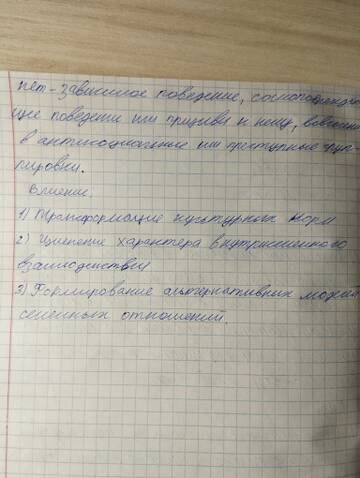 нет-зависимое поведение, самоповреждаю
щее поведение или призывы к нему, вовлечение
в антисоциальные или преступные груп-
пировки.
Влияние.
1) Трансформация культурных норм
2) Изменение характера внутрисемейного
взаимодействия
3) Формирование альтернативных моделей
семейных отношений.